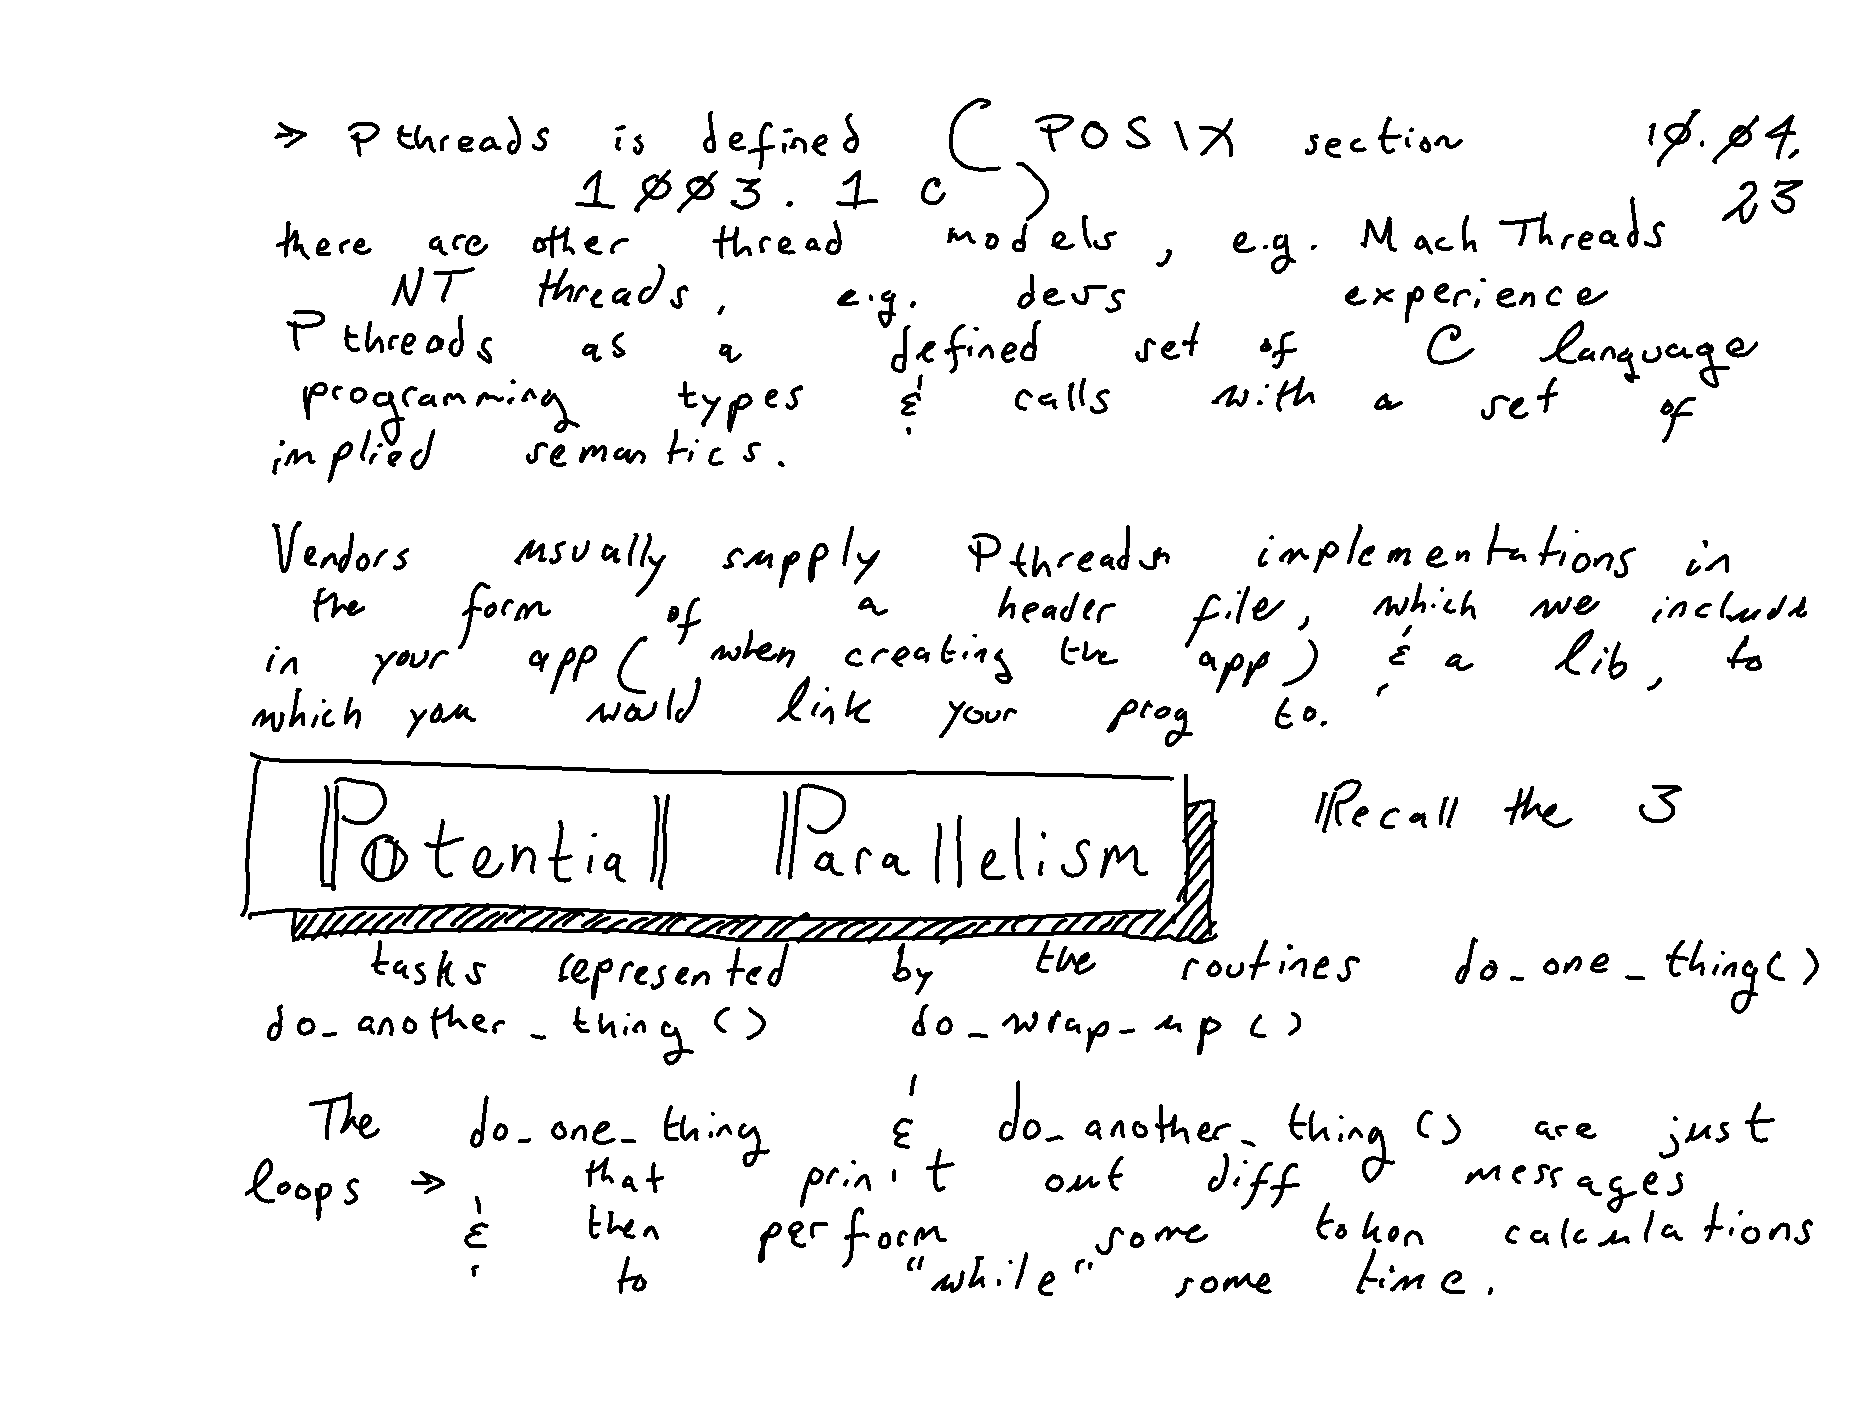 → Pthreads is defined (POSIX section 10.04.
1003.1c) 23
there are other thread models, e.g. Mach Threads
NT threads, e.g. devs experience
Pthreads as a defined set of C language
programming types & calls with a set of
implied semantics.
Vendors usually supply Pthreads implementations in
the form of a header file, which we include
in your app (when creating the app) & a lib, to
which you would link your prog to.
Potential Parallelism Recall the 3
tasks represented by the routines do_one_thing()
do_another_thing() do_wrap_up()
The do_one_thing & do_another_thing() are just
loops → that print out diff messages
& then perform some token calculations
to "while" some time.